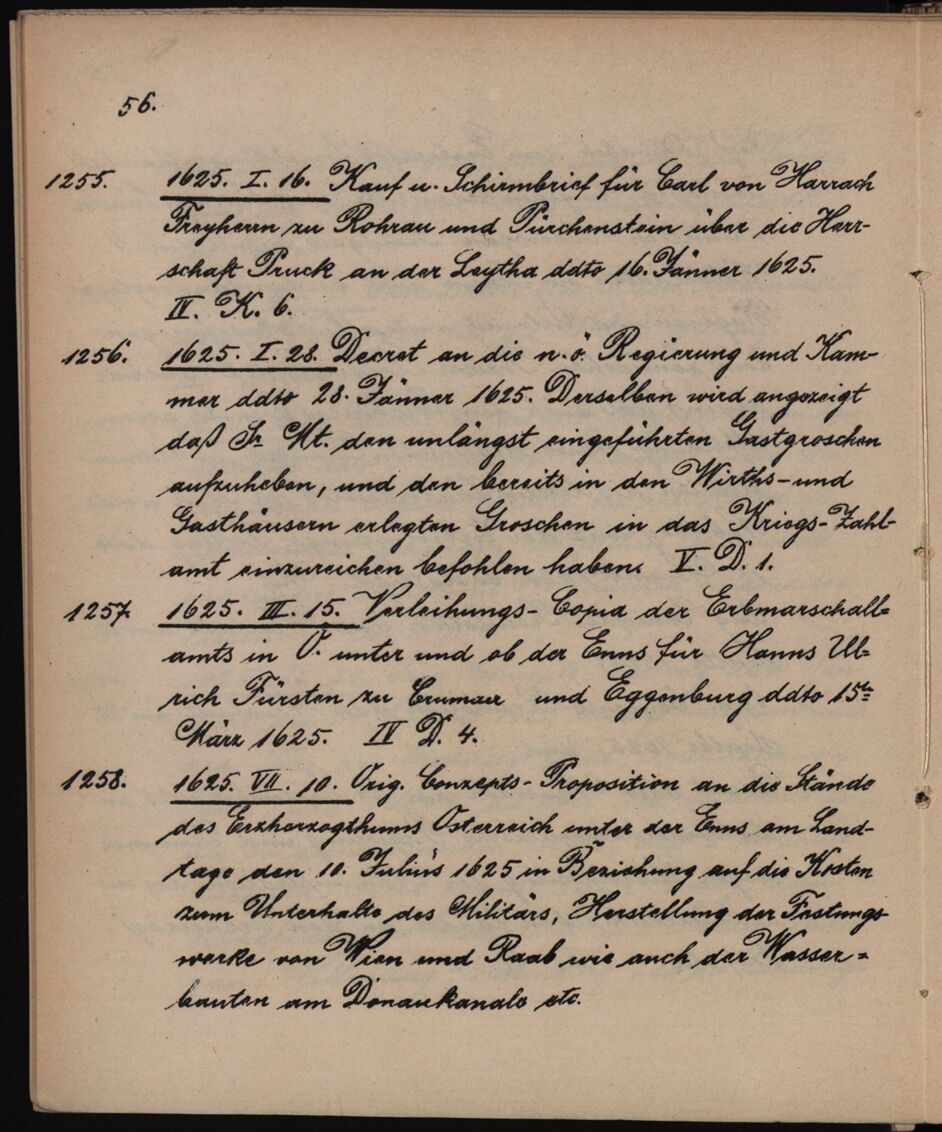 56.
1255. 1625. I. 16. Kauf u. Schirmbrief für Carl von Harrach
Freyherrn zu Rohrau und Pürchenstein über die Herr-
schaft Pruck an der Leytha ddto 16. Jänner 1625.
IV. K. 6.
1256. 1625. I. 28. Decret an die n. ö. Regierung und Kam-
mer ddto 28. Jänner 1625. Derselben wird angezeigt
daß Sr Mt. den unlängst eingeführten Gastgroschen
aufzuheben, und den bereits in den Wirths- und
Gasthäusern erlegten Groschen in das Kriegs-Zahl-
amt einzureichen befohlen haben. V. D. 1.
1257 1625. III. 15. Verleihungs-Copia der Erbmarschall=
amts in O. unter und ob der Enns für Hanns Ul=
rich Fürsten zu Crumau und Eggenburg ddto 15tn
März 1625. IV D. 4.
1258. 1625. VII. 10. Orig. Conzepts-Proposition an die Stände
des Erzherzogthums Österreich unter der Enns am Land-
tage den 10. Julius 1625 in Beziehung auf die Kosten
zum Unterhalte des Militärs, Herstellung der Festungs-
werke von Wien und Raab wie auch der Wasser=
bauten am Donaukanale etc.